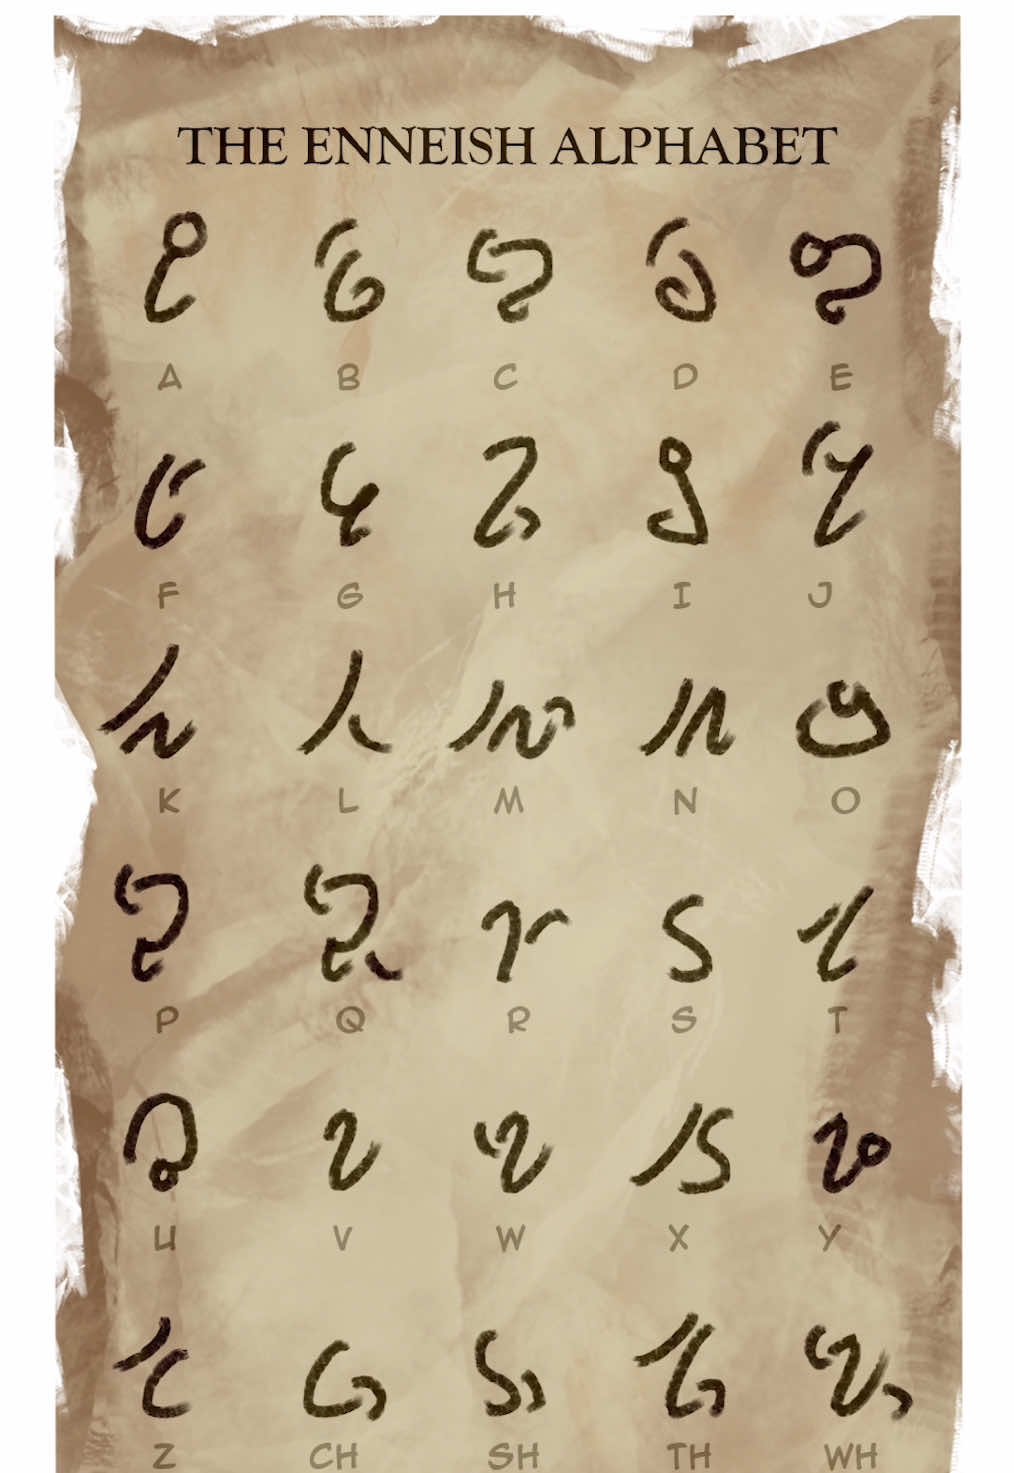 THE ENNEISH ALPHABET
A B C D E
F G H I J
K L M N O
P Q R S T
U V W X Y
Z CH SH TH WH